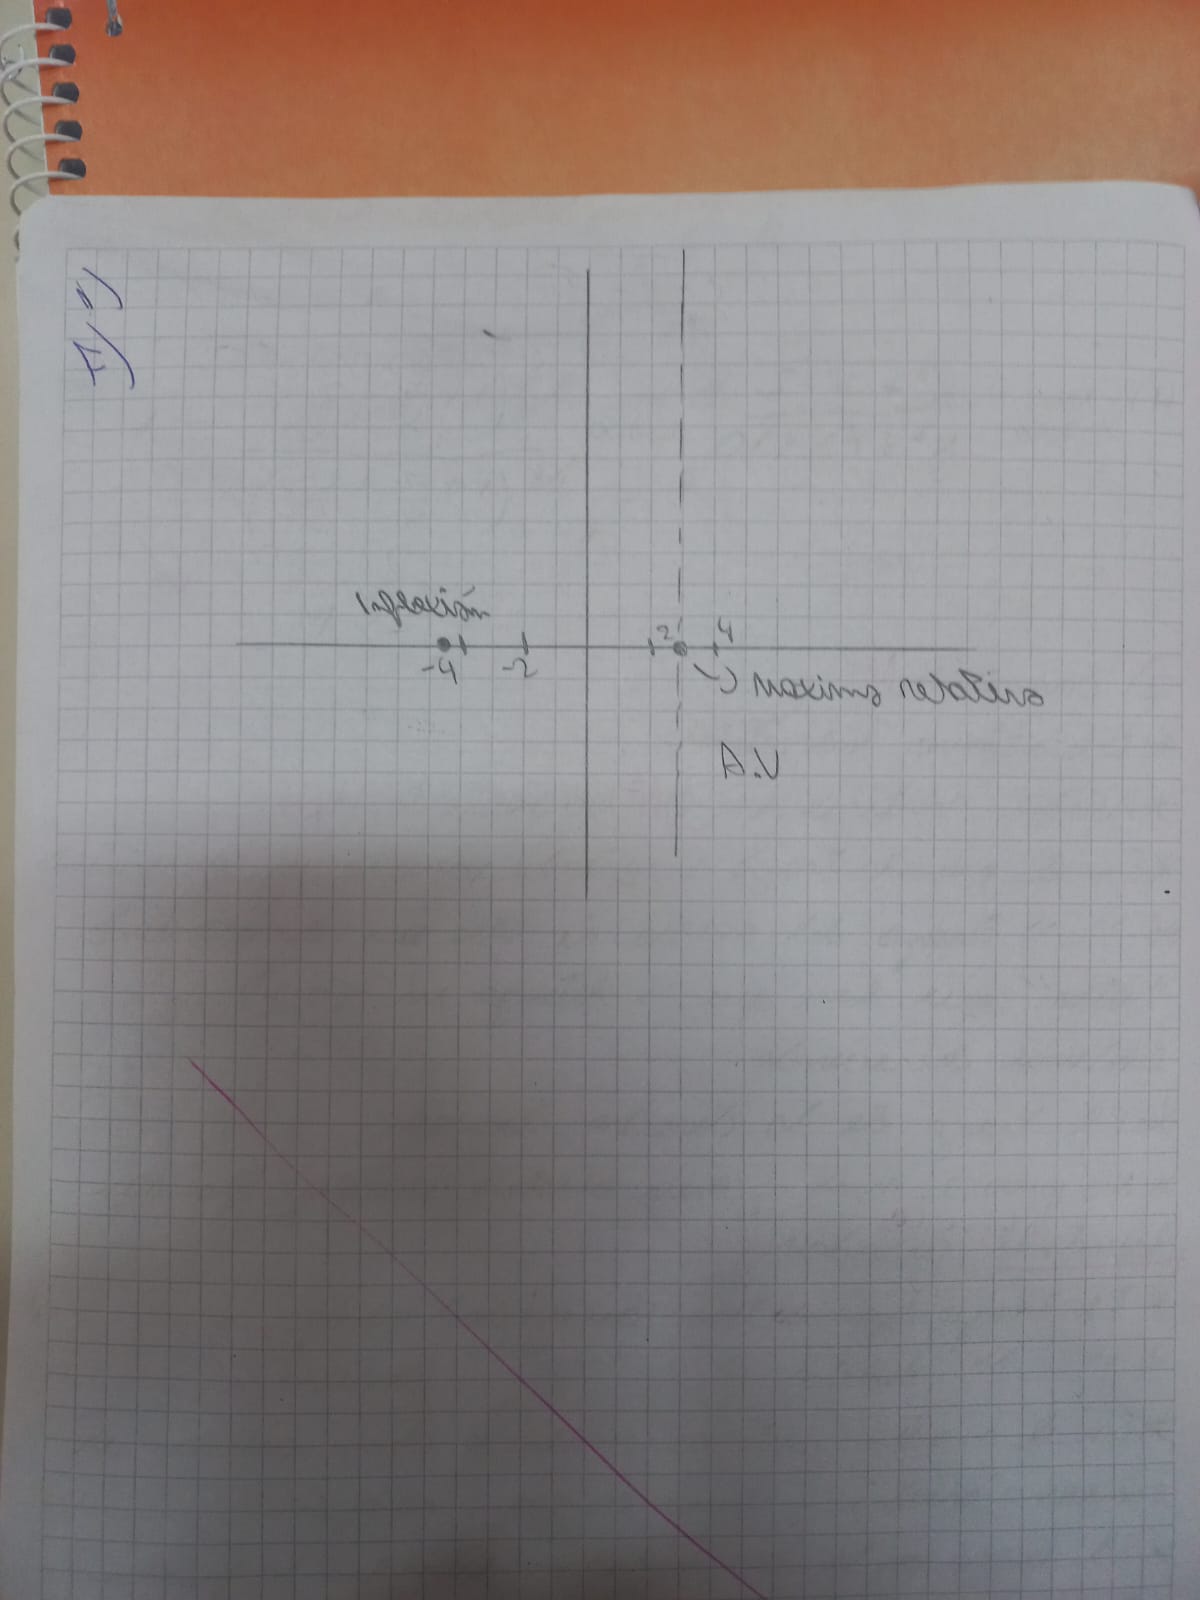 Inflexión
2 4
-4 -2
Maximo relativo
A.V